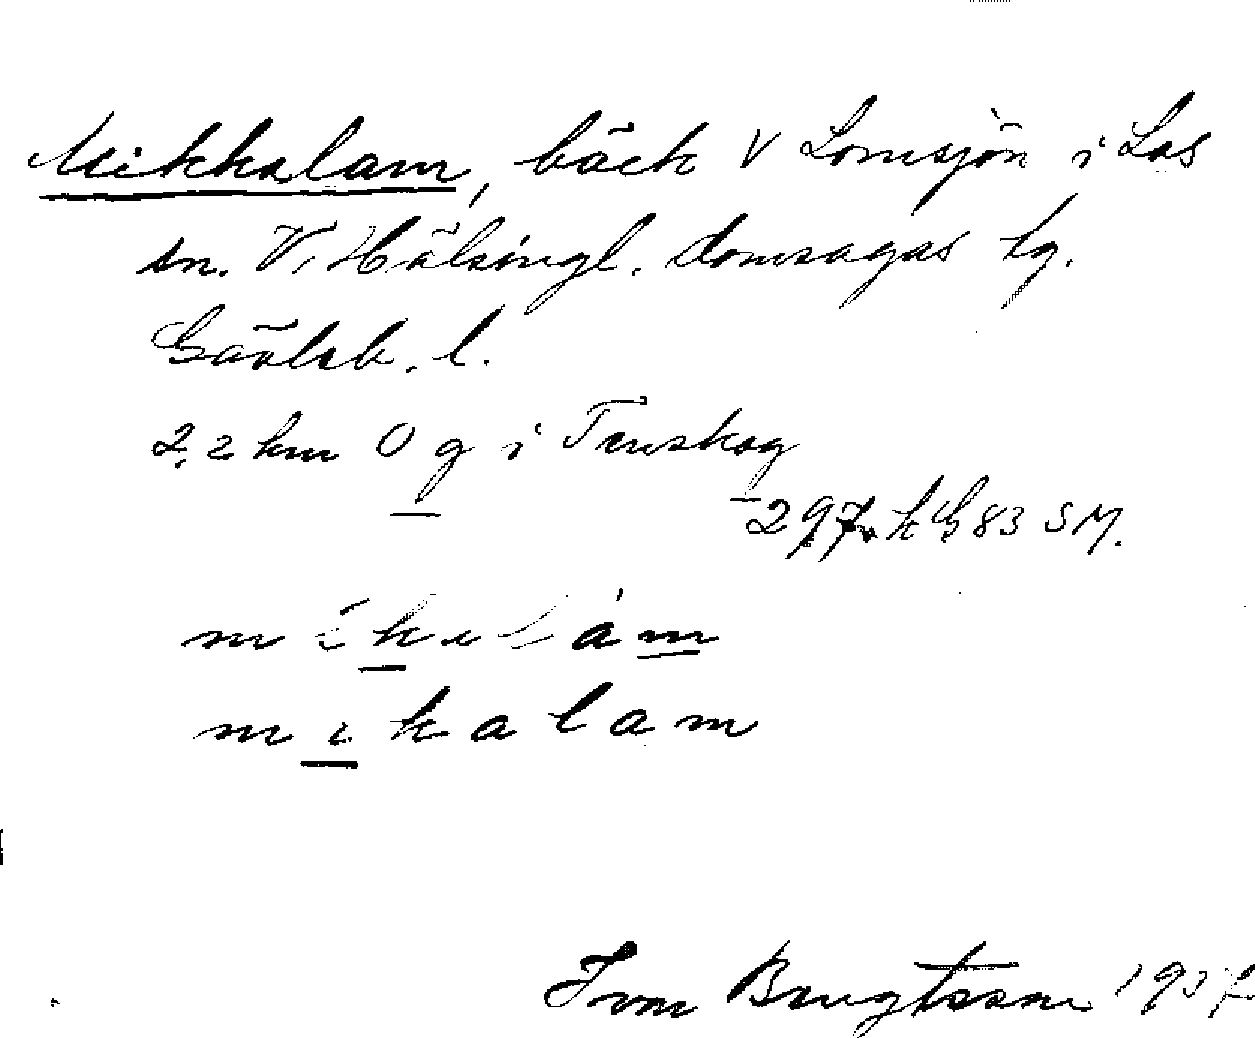 Mikkalam, bäck V Lomsjön i Los
sn. V. Hälsingl. domsagas tg.
Gävleb. l.
2,2 km O g i Tenskog
297 k G 83 SM.
mikalam
Ivan Bengtsson 1937